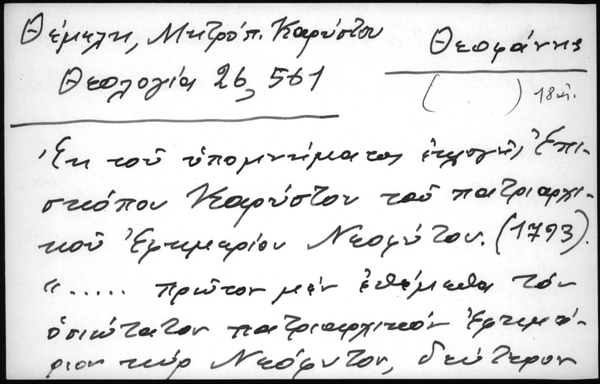 Θέμελη, Μητρόπ. Καρύστου
Θεοφάνης
Θεολογία 26, 561
( ) 18 αἰ.
Ἐκ τοῦ ὑπομνήματος ἐκλογῆς Ἐπι-
σκόπου Καρύστου τοῦ πατριαρχι-
κοῦ Ἐφημερίου Νεοφύτου. (1793).
"..... πρῶτον μὲν ἐθέμεθα τὸν
ὁσιώτατον πατριαρχικὸν ἐφημέ-
ριον κὺρ Νεόφυτον, δεύτερον